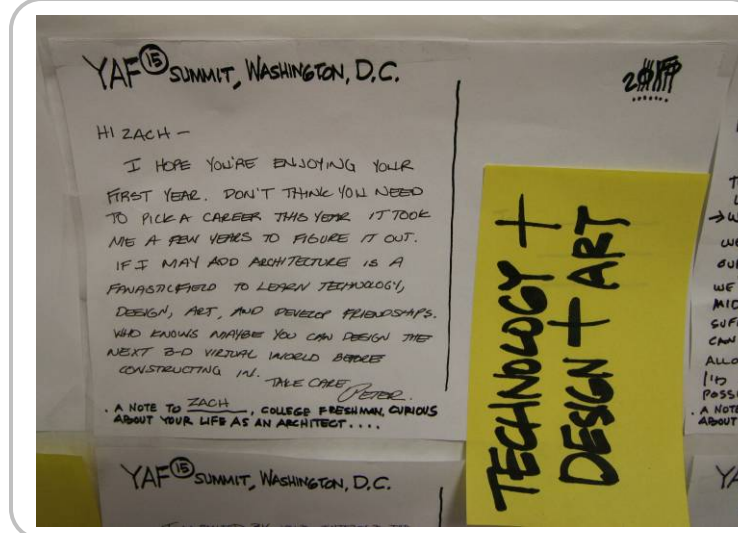 YAF 15 SUMMIT, WASHINGTON, D.C.
HI ZACH —
I HOPE YOU'RE ENJOYING YOUR
FIRST YEAR. DON'T THINK YOU NEED
TO PICK A CAREER THIS YEAR IT TOOK
ME A FEW YEARS TO FIGURE IT OUT.
IF I MAY ADD ARCHITECTURE IS A
FANASTIC FIELD TO LEARN TECHNOLOGY,
DESIGN, ART, AND DEVELOP FRIENDSHIPS.
WHO KNOWS MAYBE YOU CAN DESIGN THE
NEXT 3-D VIRTUAL WORLD BEFORE
CONSTRUCTING IN. TAKE CARE, PETER.
. A NOTE TO ZACH, COLLEGE FRESHMAN, CURIOUS
ABOUT YOUR LIFE AS AN ARCHITECT....
TECHNOLOGY +
DESIGN + ART
YAF 15 SUMMIT, WASHINGTON, D.C.
→W
WE
OUR
WE
MID
SUF
CAN
ALLO
POSS
. A NOTE
ABOUT
YA